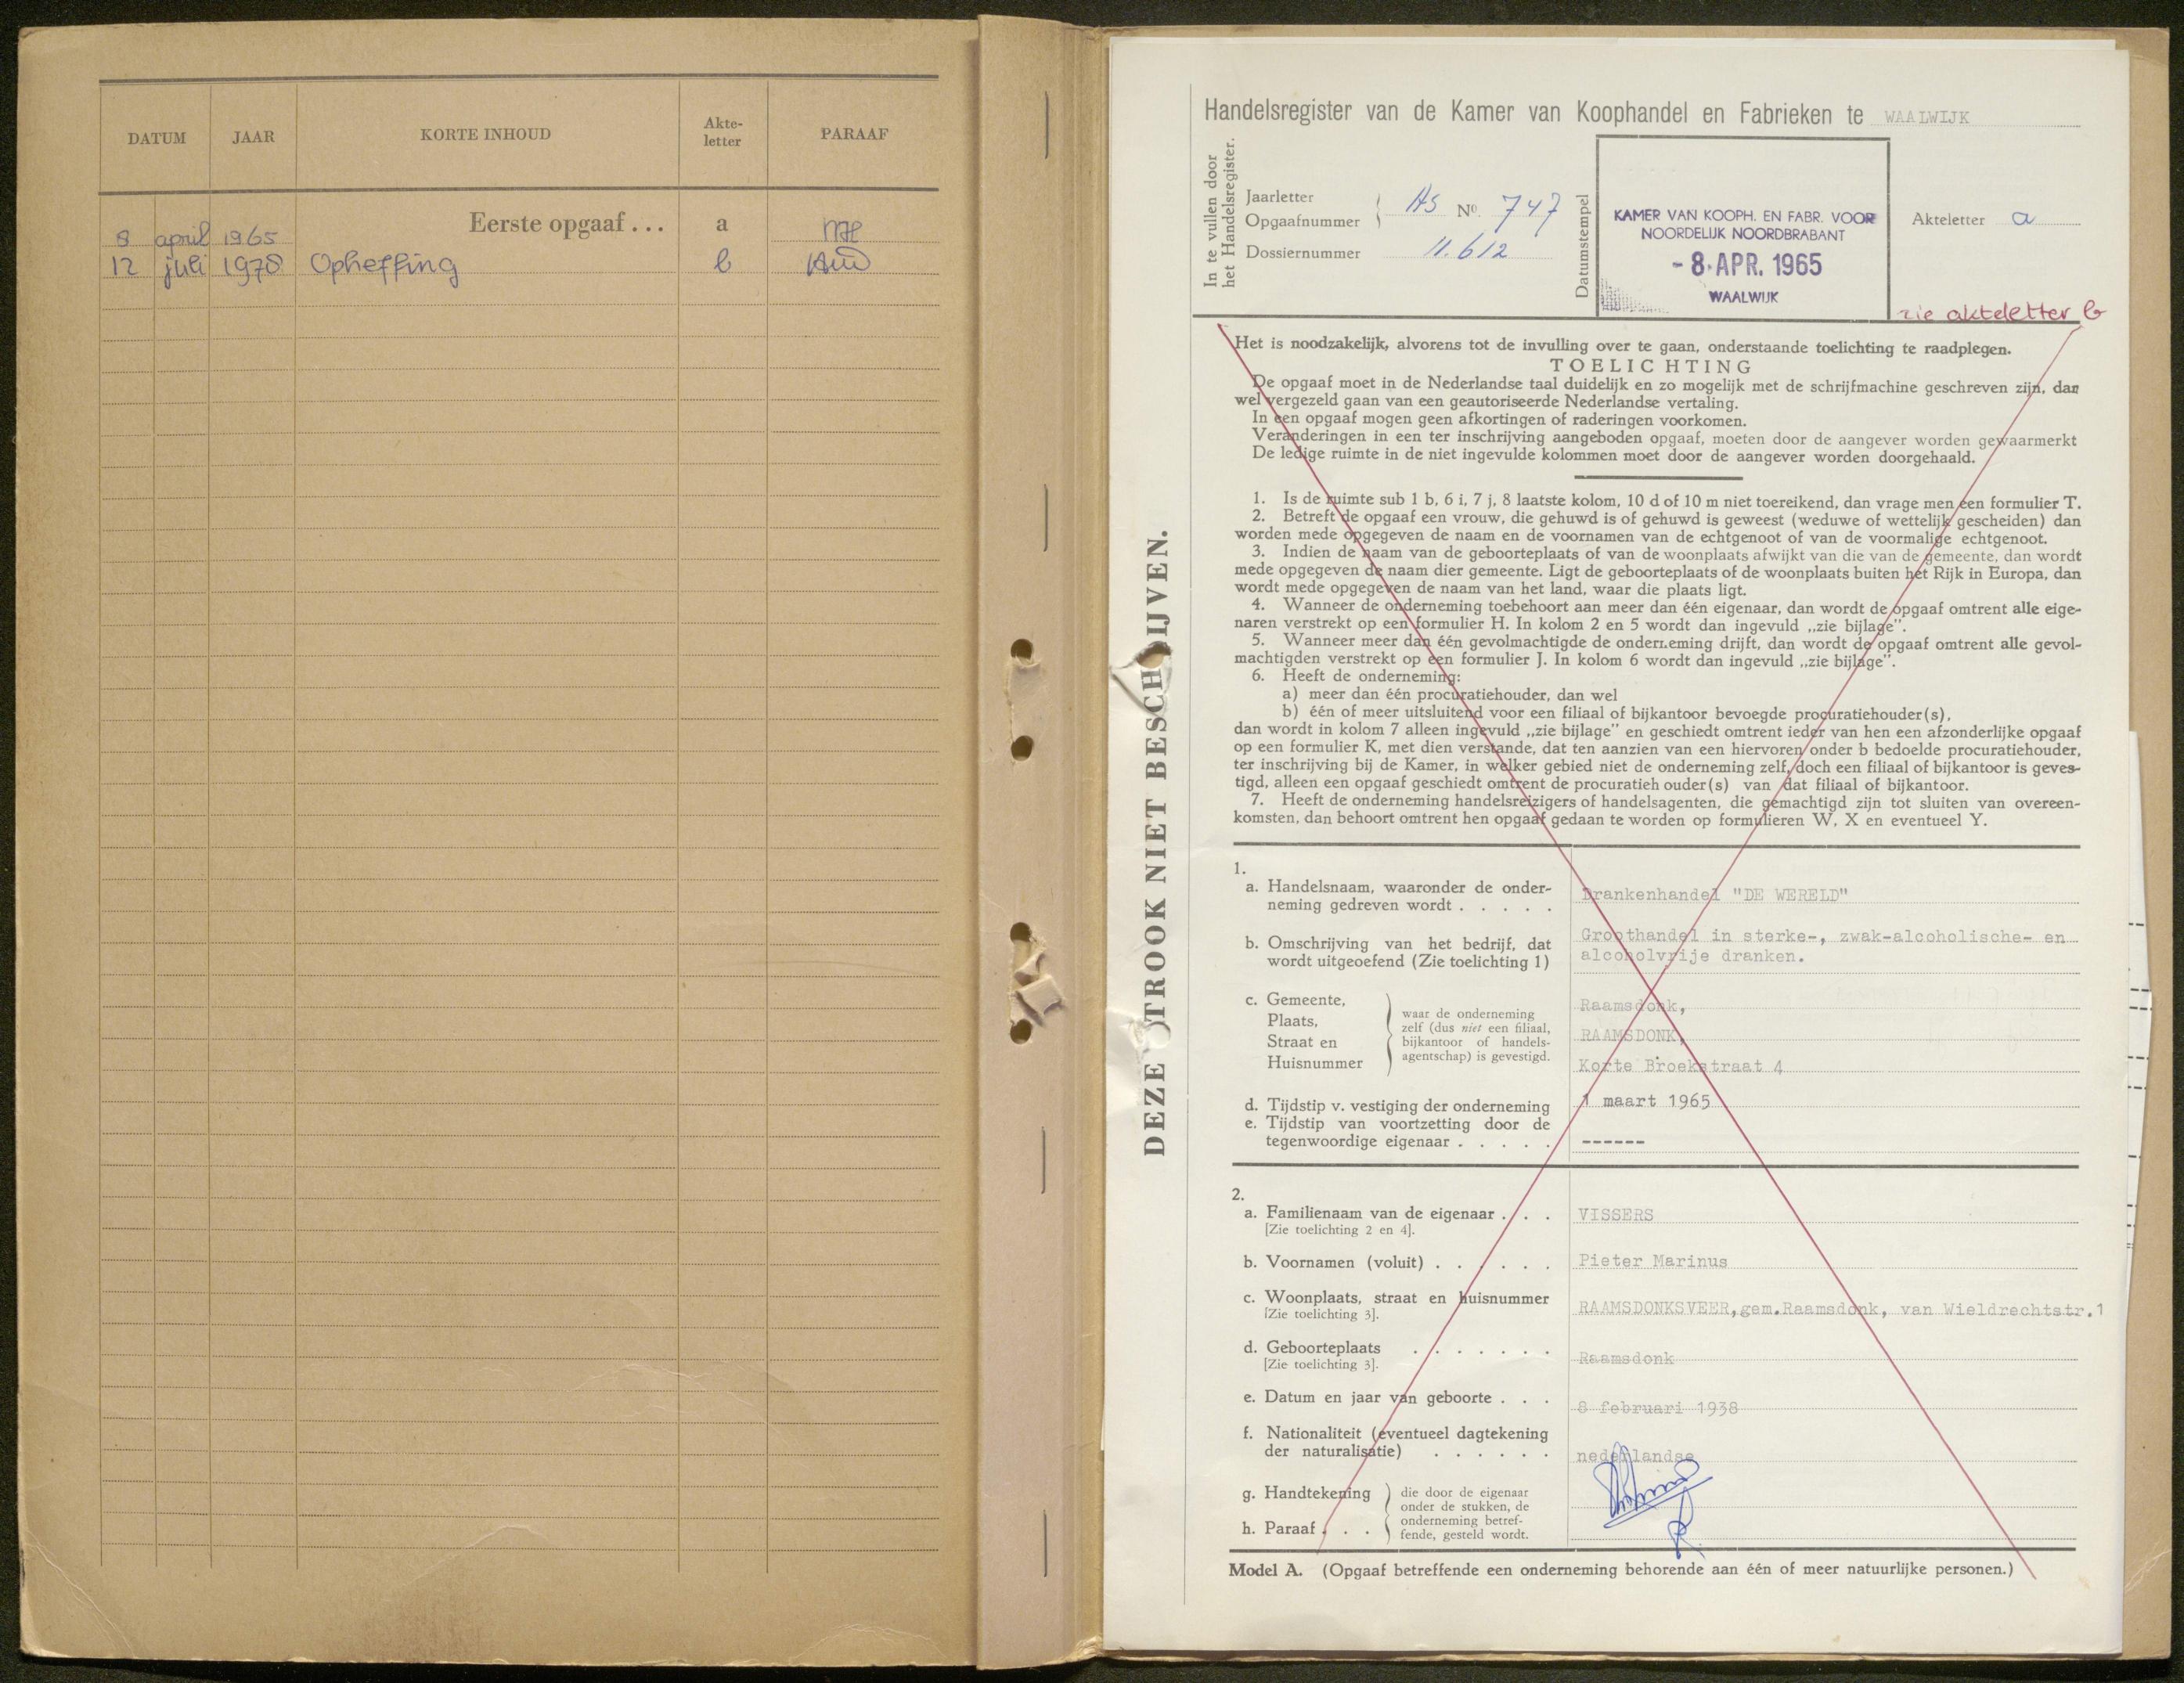 DATUM JAAR KORTE INHOUD Akte-letter PARAAF
8 april 1965 Eerste opgaaf... a
12 juli 1978 Opheffing b
DEZE STROOK NIET BESCHRIJVEN.
Handelsregister van de Kamer van Koophandel en Fabrieken te WAALWIJK
In te vullen door
het Handelsregister.
Jaarletter
Opgaafnummer
A5 No. 747
Dossiernummer 11.612
Datumstempel
KAMER VAN KOOPH. EN FABR. VOOR
NOORDELIJK NOORDBRABANT
- 8. APR. 1965
WAALWIJK
Akteletter a
zie akteletter b
Het is noodzakelijk, alvorens tot de invulling over te gaan, onderstaande toelichting te raadplegen.
TOELICHTING
De opgaaf moet in de Nederlandse taal duidelijk en zo mogelijk met de schrijfmachine geschreven zijn, dan
wel vergezeld gaan van een geautoriseerde Nederlandse vertaling.
In een opgaaf mogen geen afkortingen of raderingen voorkomen.
Veranderingen in een ter inschrijving aangeboden opgaaf, moeten door de aangever worden gewaarmerkt
De ledige ruimte in de niet ingevulde kolommen moet door de aangever worden doorgehaald.
1. Is de ruimte sub 1 b, 6 i, 7 j, 8 laatste kolom, 10 d of 10 m niet toereikend, dan vrage men een formulier T.
2. Betreft de opgaaf een vrouw, die gehuwd is of gehuwd is geweest (weduwe of wettelijk gescheiden) dan
worden mede opgegeven de naam en de voornamen van de echtgenoot of van de voormalige echtgenoot.
3. Indien de naam van de geboorteplaats of van de woonplaats afwijkt van die van de gemeente, dan wordt
mede opgegeven de naam dier gemeente. Ligt de geboorteplaats of de woonplaats buiten het Rijk in Europa, dan
wordt mede opgegeven de naam van het land, waar die plaats ligt.
4. Wanneer de onderneming toebehoort aan meer dan één eigenaar, dan wordt de opgaaf omtrent alle eige-
naren verstrekt op een formulier H. In kolom 2 en 5 wordt dan ingevuld „zie bijlage”.
5. Wanneer meer dan één gevolmachtigde de onderneming drijft, dan wordt de opgaaf omtrent alle gevol-
machtigden verstrekt op een formulier J. In kolom 6 wordt dan ingevuld „zie bijlage”.
6. Heeft de onderneming:
a) meer dan één procuratiehouder, dan wel
b) één of meer uitsluitend voor een filiaal of bijkantoor bevoegde procuratiehouder(s),
dan wordt in kolom 7 alleen ingevuld „zie bijlage” en geschiedt omtrent ieder van hen een afzonderlijke opgaaf
op een formulier K, met dien verstande, dat ten aanzien van een hiervoren onder b bedoelde procuratiehouder,
ter inschrijving bij de Kamer, in welker gebied niet de onderneming zelf, doch een filiaal of bijkantoor is geves-
tigd, alleen een opgaaf geschiedt omtrent de procuratieh ouder(s) van dat filiaal of bijkantoor.
7. Heeft de onderneming handelsreizigers of handelsagenten, die gemachtigd zijn tot sluiten van overeen-
komsten, dan behoort omtrent hen opgaaf gedaan te worden op formulieren W, X en eventueel Y.
1.
a. Handelsnaam, waaronder de onder-
neming gedreven wordt . . . . . Drankenhandel "DE WERELD"
b. Omschrijving van het bedrijf, dat Groothandel in sterke-, zwak-alcoholische- en
wordt uitgeoefend (Zie toelichting 1) alcoholvrije dranken.
c. Gemeente, Raamsdonk,
Plaats, RAAMSDONK,
Straat en
Huisnummer Korte Broekstraat 4
waar de onderneming
zelf (dus niet een filiaal,
bijkantoor of handels-
agentschap) is gevestigd.
d. Tijdstip v. vestiging der onderneming 1 maart 1965
e. Tijdstip van voortzetting door de
tegenwoordige eigenaar . . . . . ------
2.
a. Familienaam van de eigenaar . . . VISSERS
[Zie toelichting 2 en 4].
b. Voornamen (voluit) . . . . . . Pieter Marinus
c. Woonplaats, straat en huisnummer RAAMSDONKSVEER, gem.Raamsdonk, van Wieldrechtstr.1
[Zie toelichting 3].
d. Geboorteplaats . . . . . . . Raamsdonk
[Zie toelichting 3].
e. Datum en jaar van geboorte . . . 8 februari 1938
f. Nationaliteit (eventueel dagtekening
der naturalisatie) . . . . . . nederlandse
g. Handtekening
h. Paraaf . . .
die door de eigenaar
onder de stukken, de
onderneming betref-
fende, gesteld wordt.
Model A. (Opgaaf betreffende een onderneming behorende aan één of meer natuurlijke personen.)